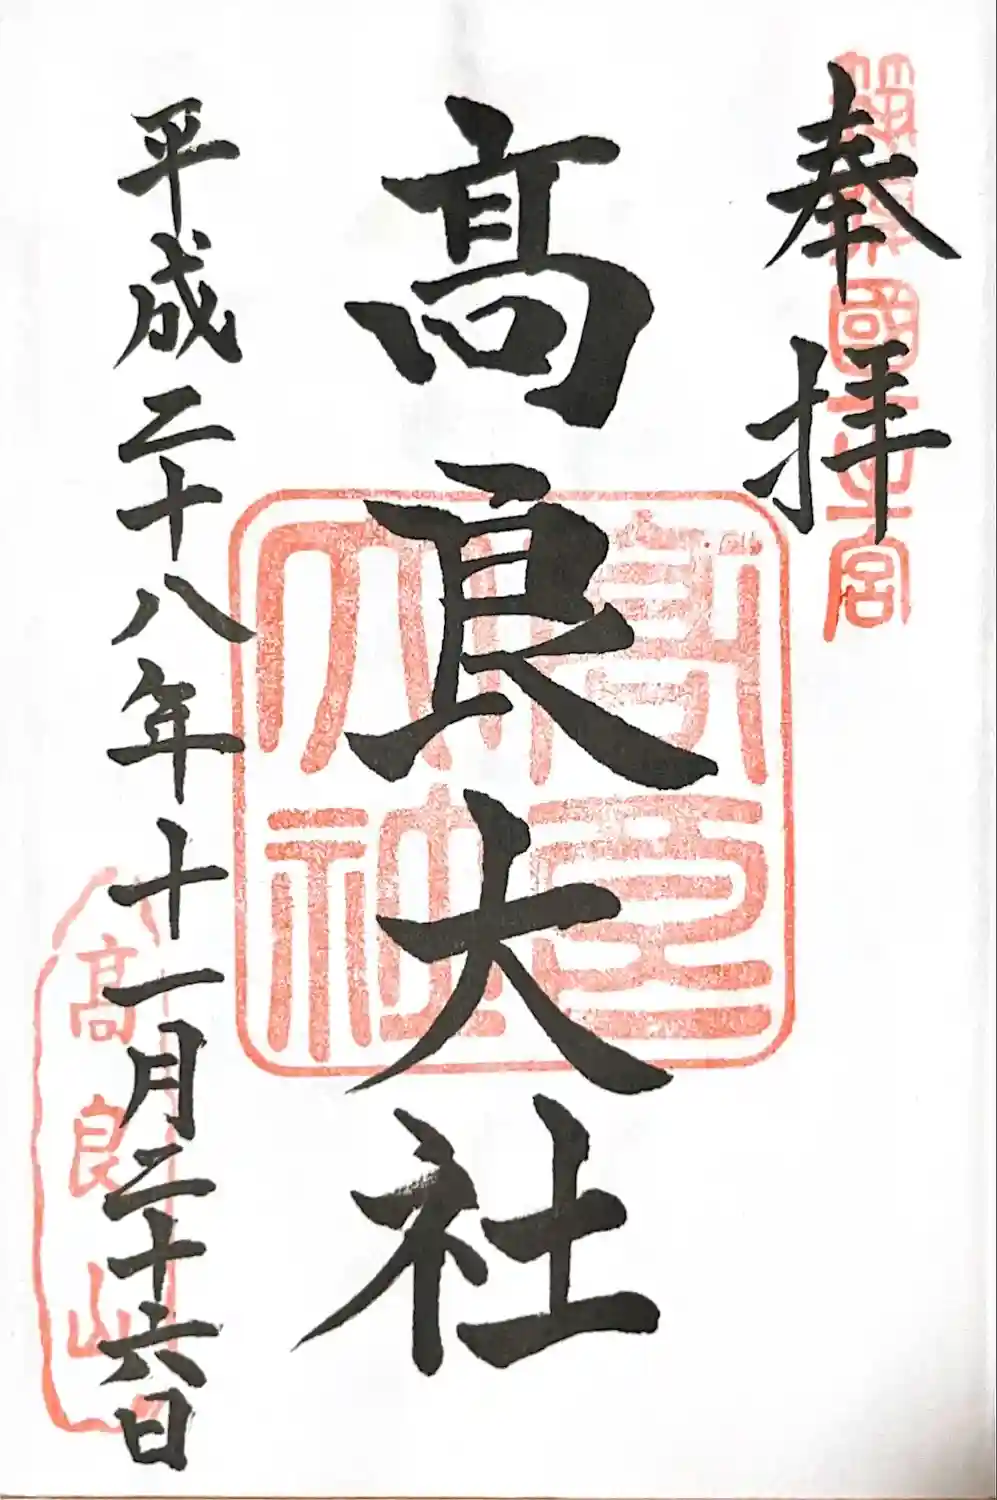 奉拝
筑後國一之宮
髙良大社
高良大社
平成二十八年十一月二十六日
髙良山